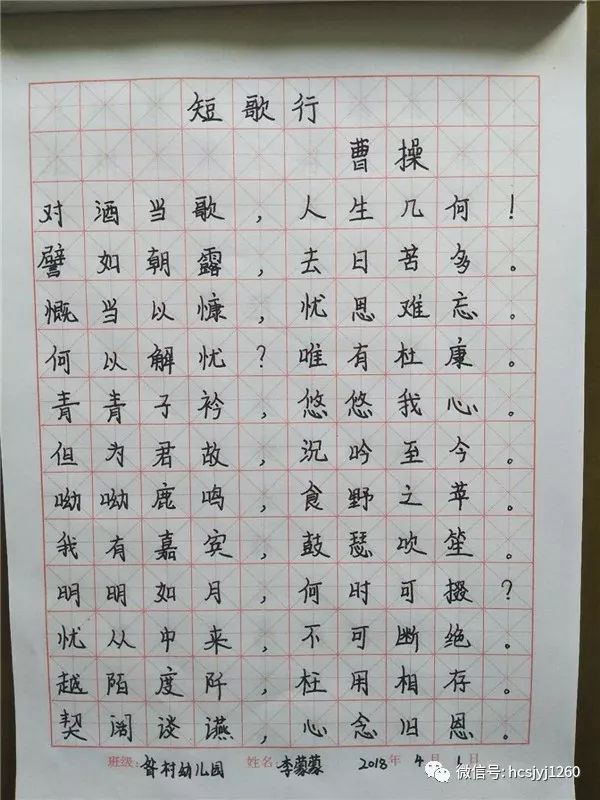 短歌行
曹操
对酒当歌，人生几何！
譬如朝露，去日苦多。
慨当以慷，忧思难忘。
何以解忧？唯有杜康。
青青子衿，悠悠我心。
但为君故，沉吟至今。
呦呦鹿鸣，食野之苹。
我有嘉宾，鼓瑟吹笙。
明明如月，何时可掇？
忧从中来，不可断绝。
越陌度阡，枉用相存。
契阔谈䜩，心念旧恩。
班级：村幼儿园 姓名：李蒙蒙 2018年4月1日
微信号: hcsjyj1260